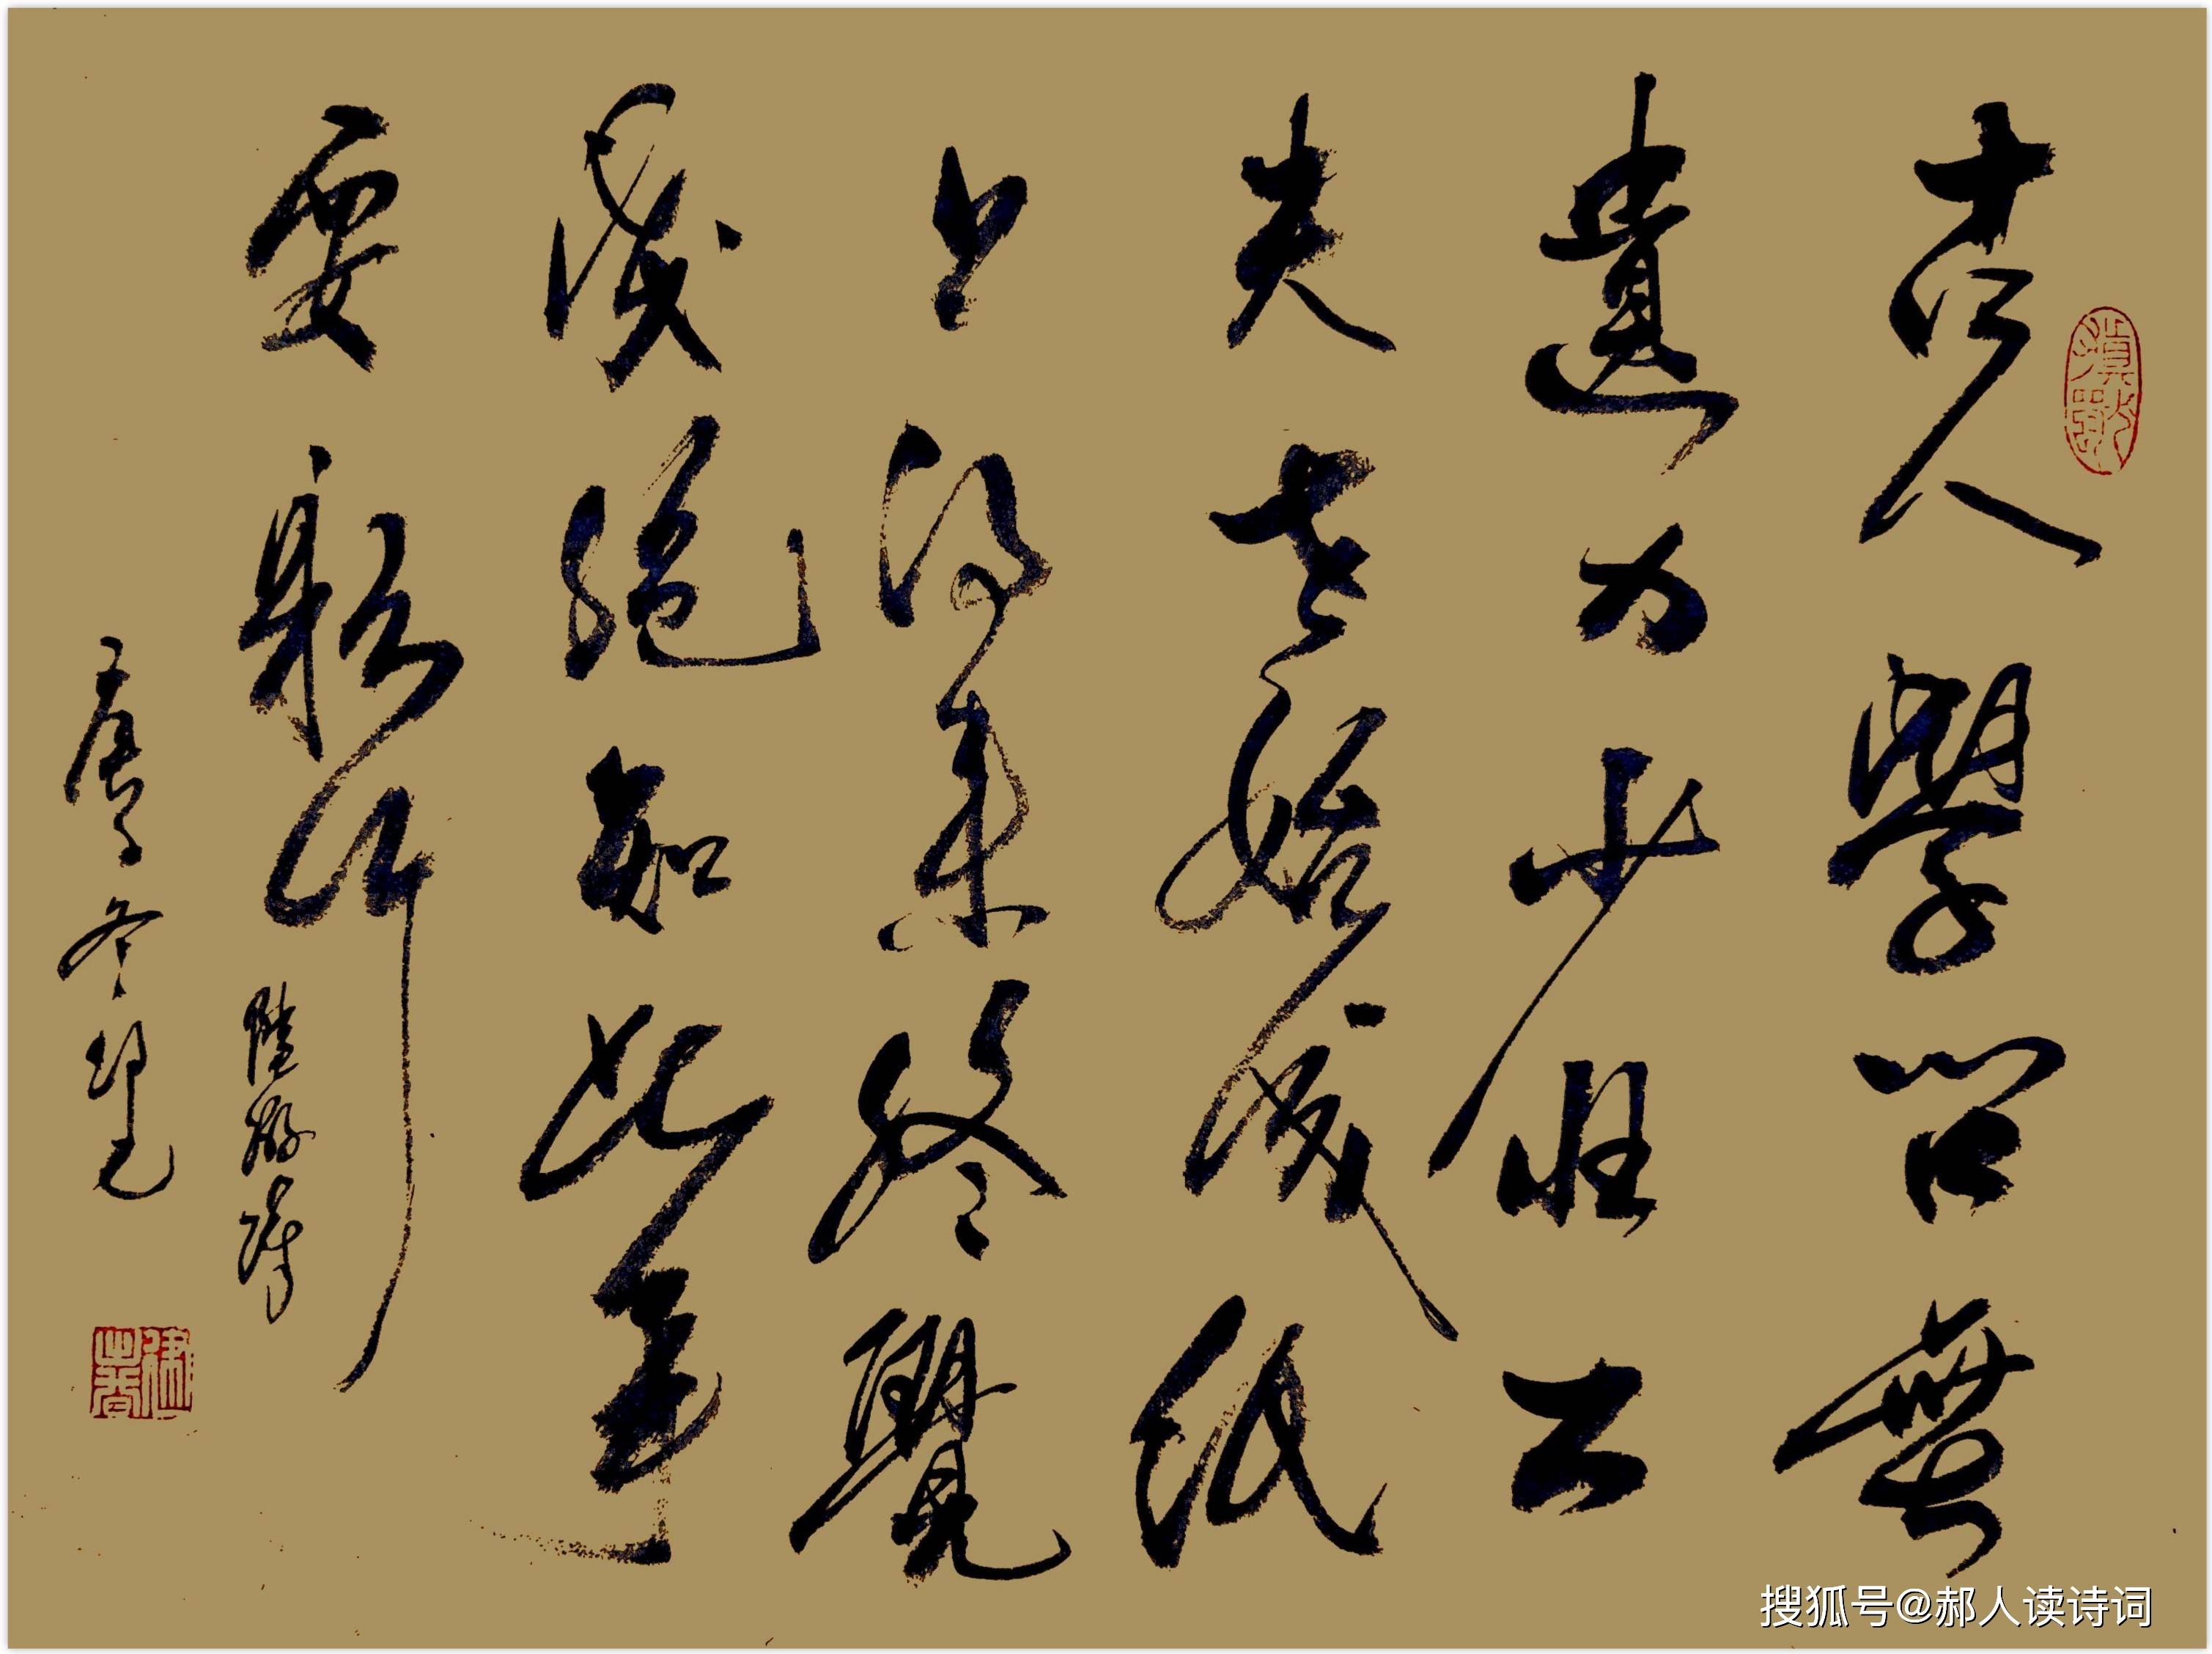 古人學問無
遺力少壯工
夫老始成紙
上得来終覺
淺絕知此事
要躬行
陸游詩
庚子冬
搜狐号@郝人读诗词